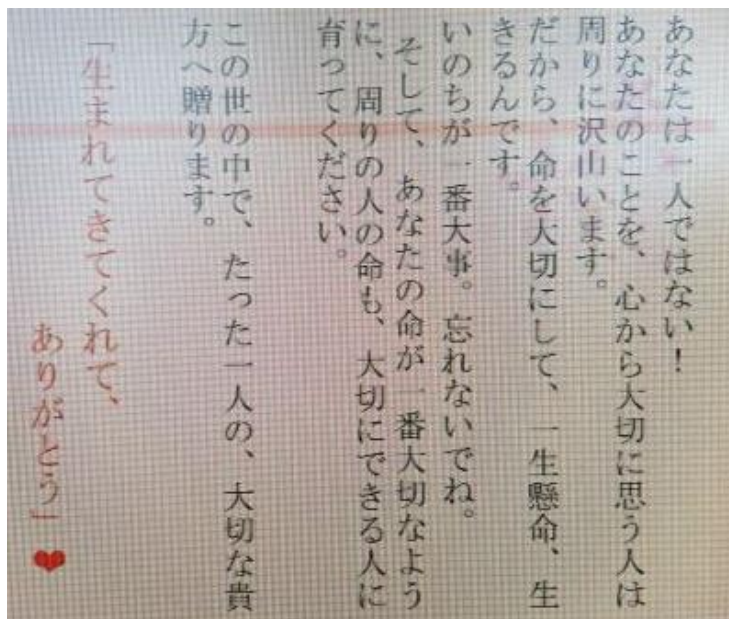 あなたは一人ではない！
あなたのことを、心から大切に思う人は
周りに沢山います。
だから、命を大切にして、一生懸命、生
きるんです。
いのちが一番大事。忘れないでね。
そして、あなたの命が一番大切なよう
に、周りの人の命も、大切にできる人に
育ってください。
この世の中で、たった一人の、大切な貴
方へ贈ります。
「生まれてきてくれて、
ありがとう」❤